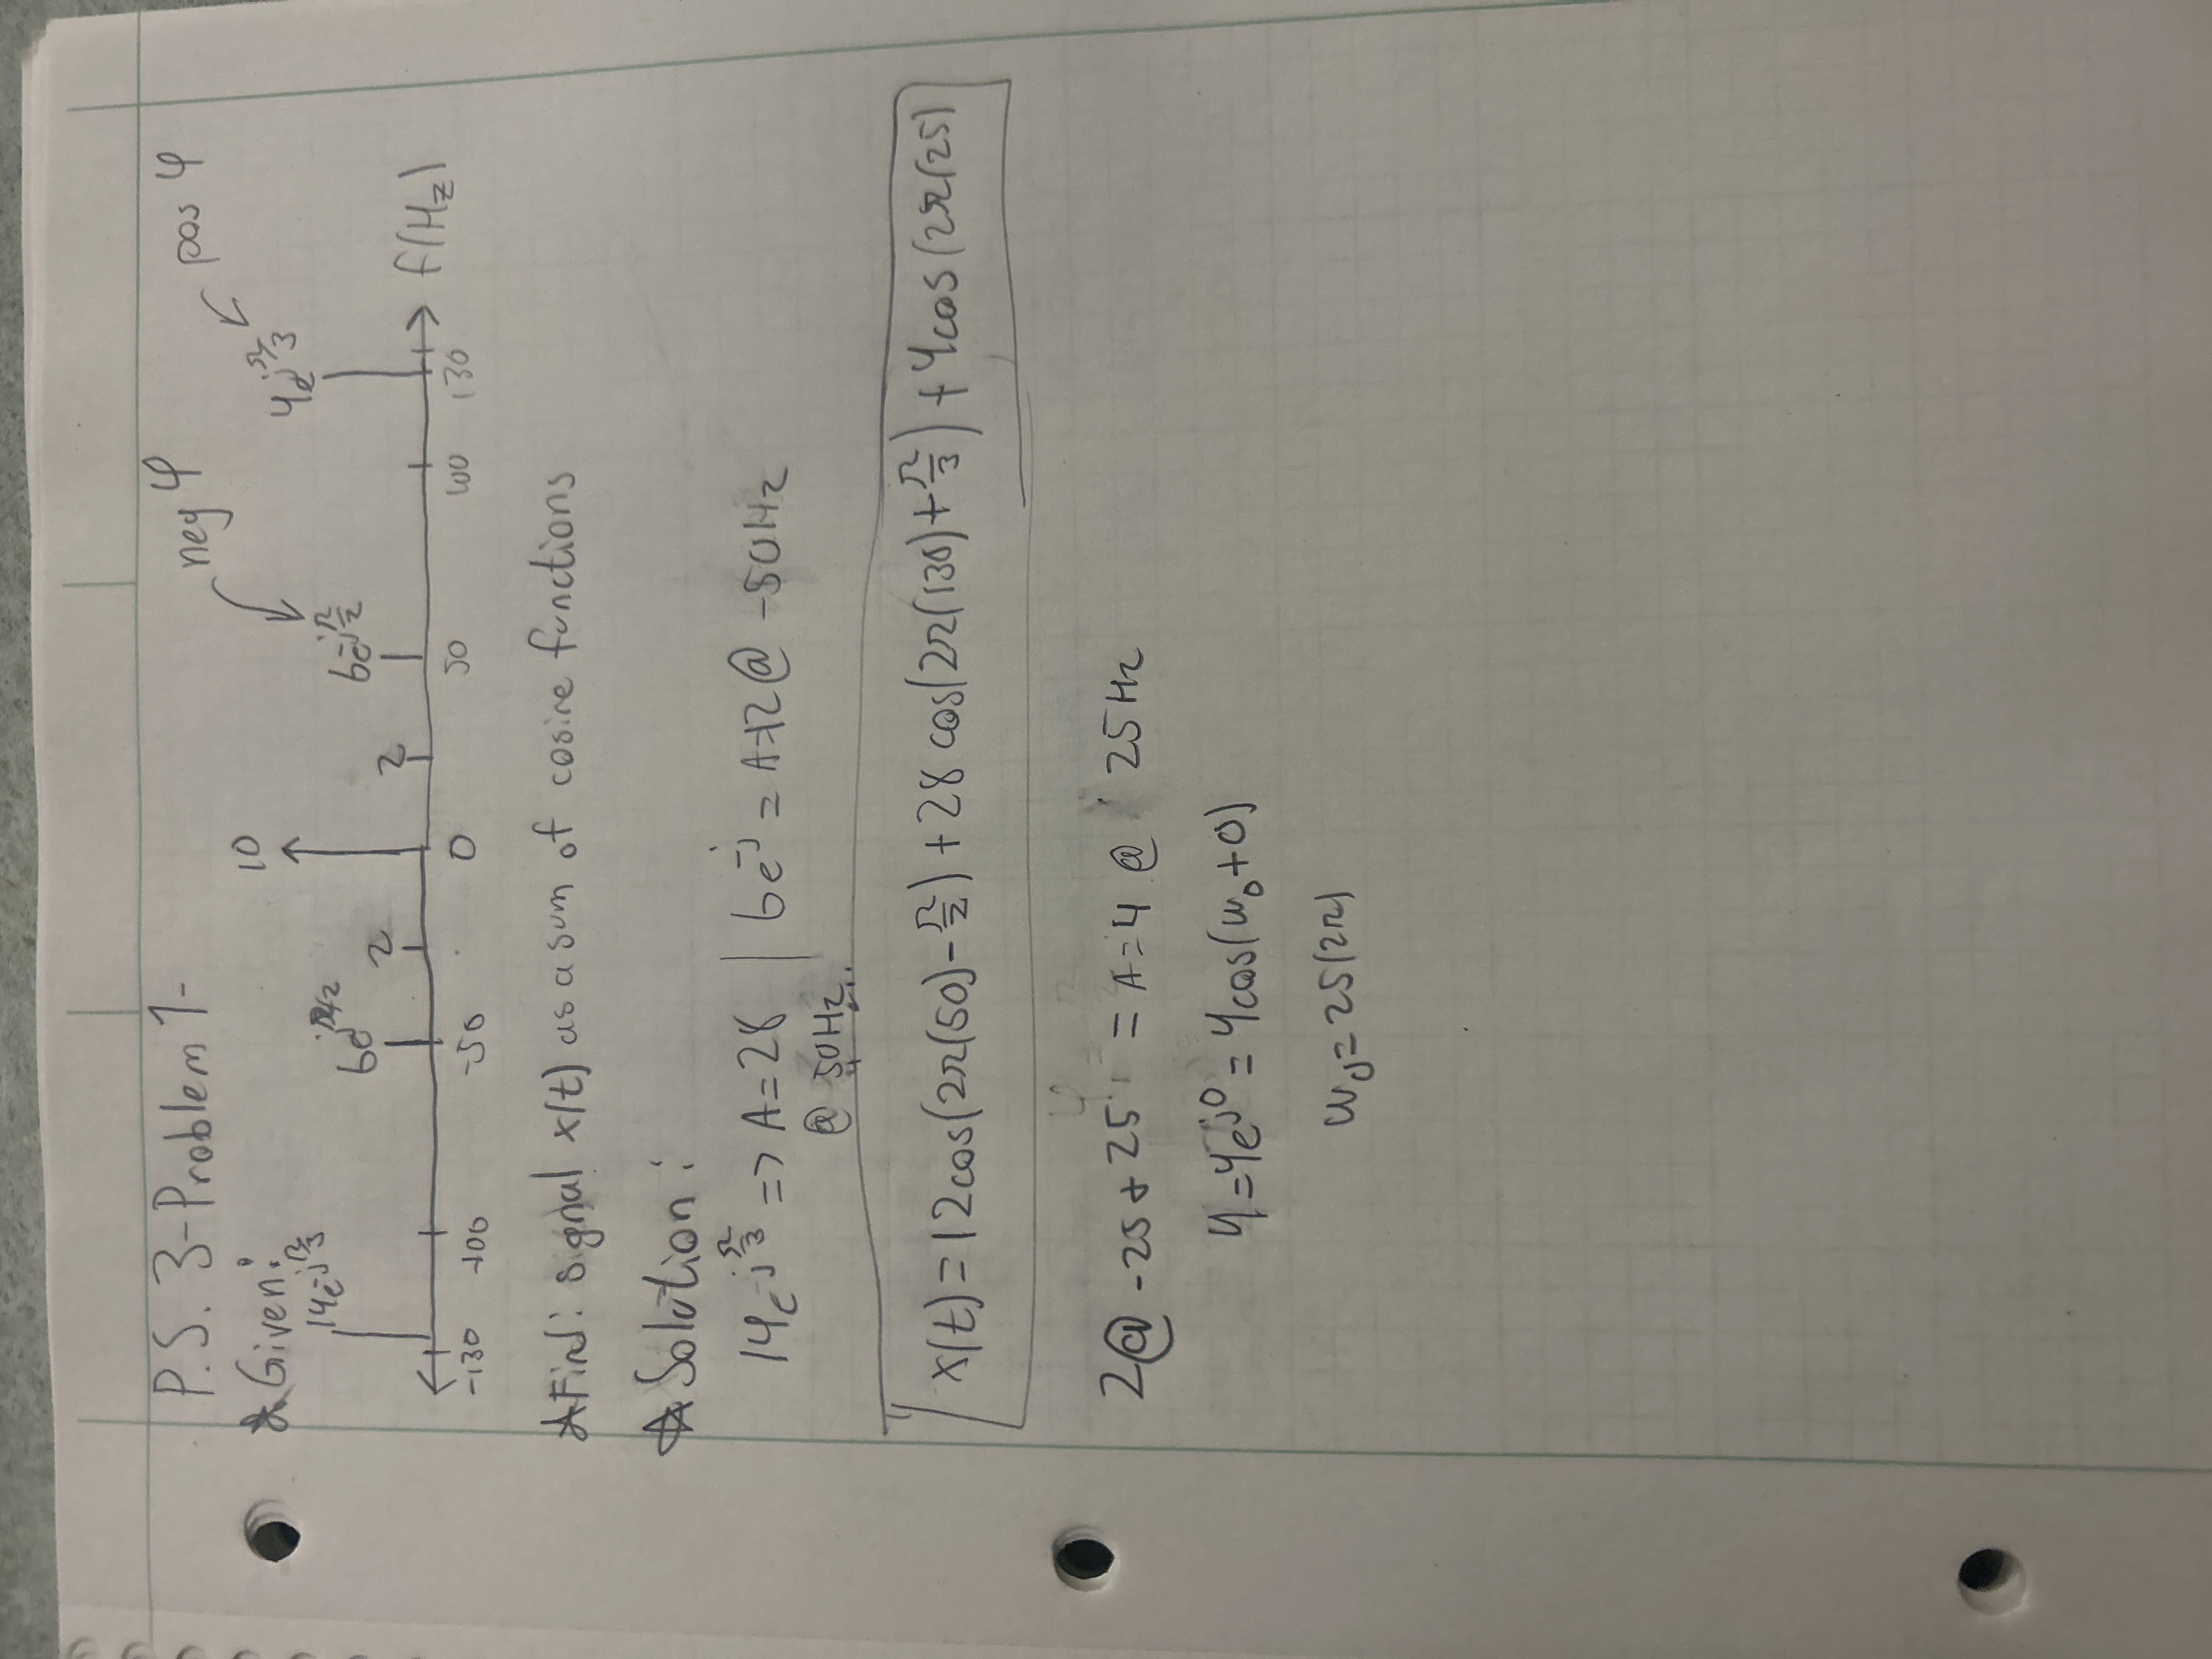 P.S. 3-Problem 1-
neg φ
pos φ
Given:
10
14e^-jπ/3
6e^jπ/2
2
2
6e^-jπ/2
4e^jπ/3
f(Hz)
-130 -100 -50 0 50 100 130
Find: signal x(t) as a sum of cosine functions
Solution:
14e^-jπ/3 => A=28 | 6e^-j = A=12 @ -50Hz
@ 50Hz
x(t) = 12cos(2π(50)-π/2) + 28 cos(2π(130)+π/3) + 4cos(2π(25)
2@ -25 + 25 = A=4 @ 25Hz
4=4e^j0 = 4cos(w₀+0)
w₀=25(2π)